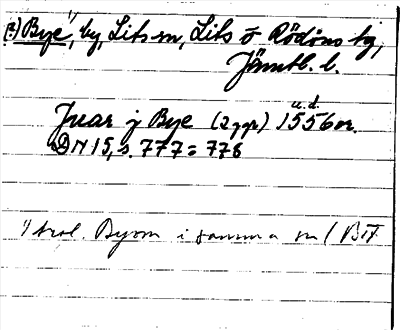 (?) Bye¹⁾, by, Lits sn, Lits o Rödöns tg,
Jämtl. l.
u. d.
Juar j Bye (2 ggr) 1556 or.
DN 15, s. 777 = 778
¹⁾ trol. Byom i samma sn (BiT